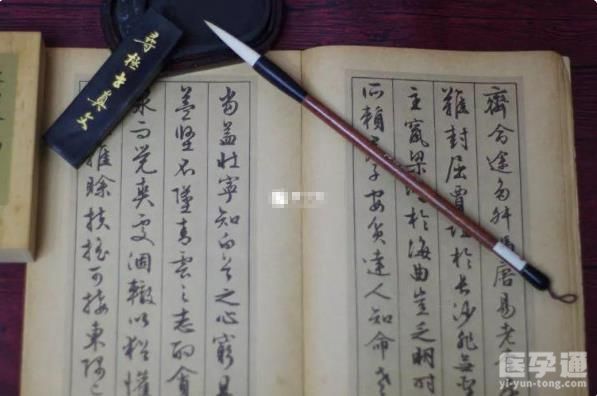 齊命途多舛馮唐易老
難封屈賈誼於長沙非無聖
主竄梁於海曲豈乏明時
所賴子安貧達人知命老
當益壯寧知白首之心窮且
益堅不墜青雲之志酌貪
泉而覺爽處涸轍以猶懽
雖賒扶搖可接東隅已
医孕通
yi-yun-tong.com